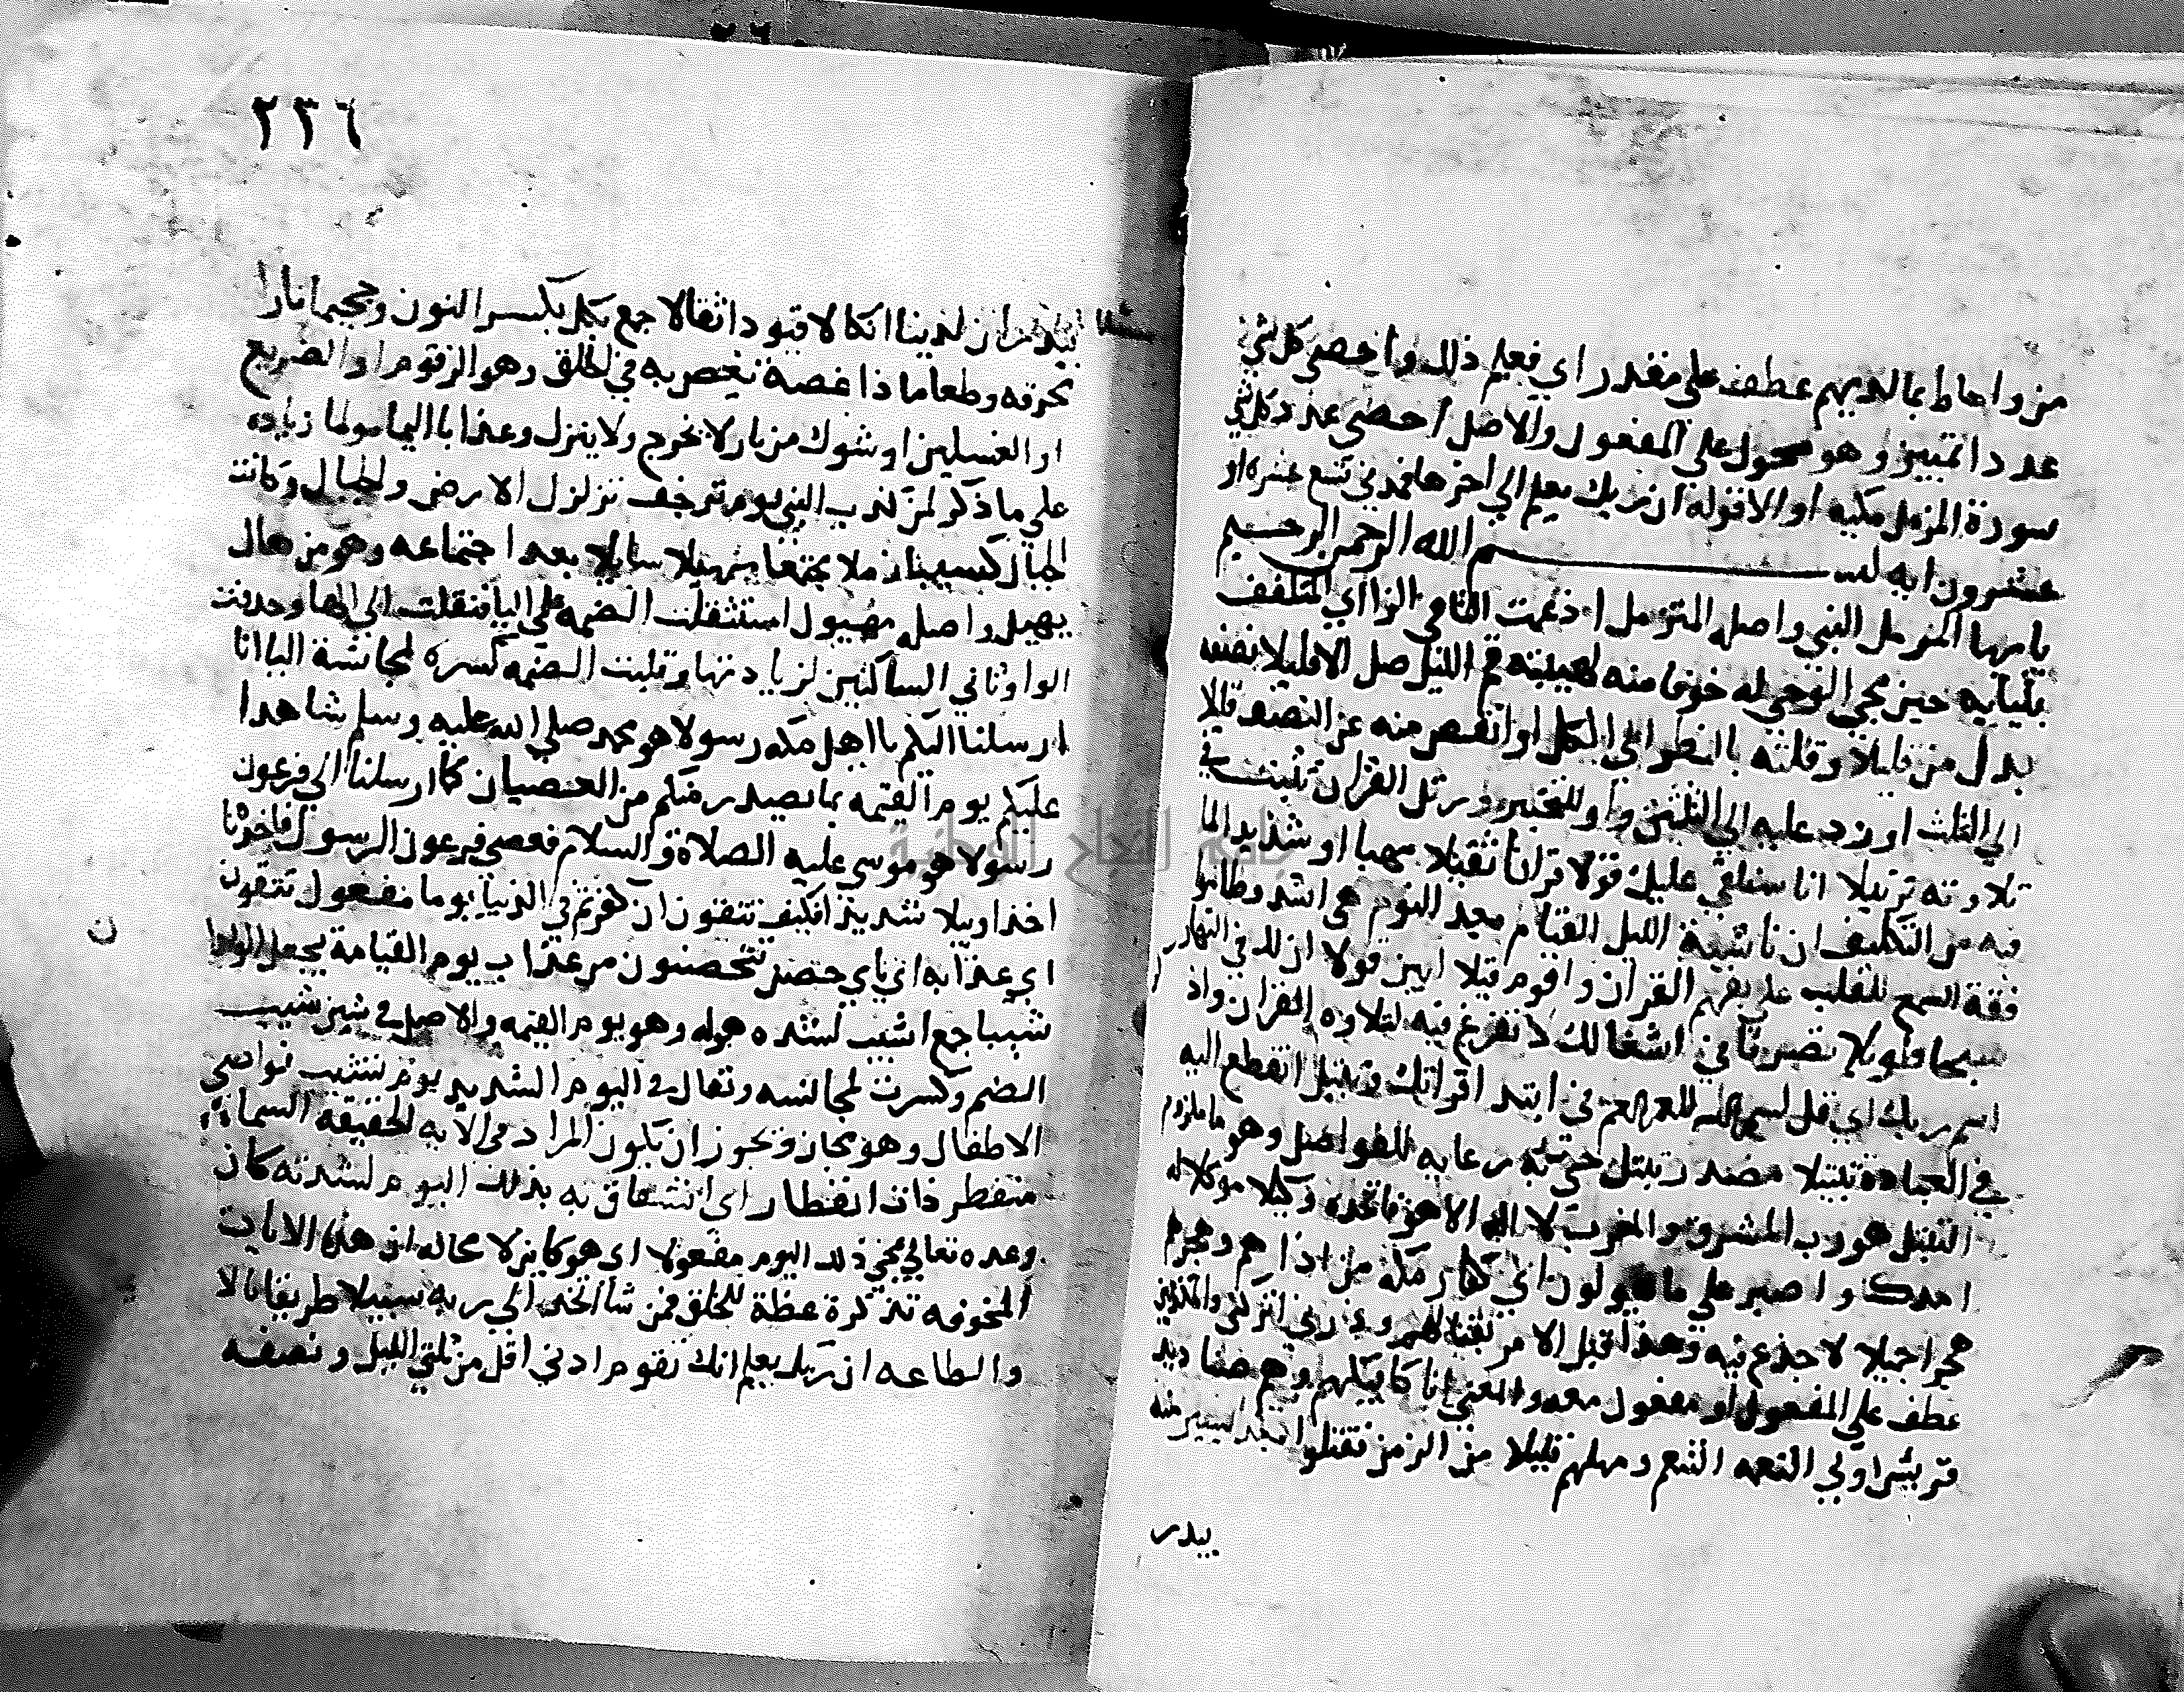 من واحاط بما لديهم عطف على مقدر اي فعلم ذلك واحصى كل شي
عددا تمييز وهو محول علي المفعول والاصل احصى عدد كل شي
سورة المزمل مكيه او الا قوله ان ربك يعلم الي اخرها فمدني تسع عشره او
عشرون ايه بسم الله الرحمن الرحيم
يا ايها المزمل النبي واصله المتزمل ادغمت التا في الزا اي المتلفف
بثيابه حين مجي الوحي له خوفا منه لهيبته قم الليل صل الا قليلا نصفه
بدل من قليلا وقلته بالنظر الي الكل او انقص منه من النصف قليلا
الي الثلث او زد عليه الي الثلثين واو للتخيير ورتل القران تثبت في
تلاوته ترتيلا انا سنلقي عليك قولا قرانا ثقيلا مهيبا او شديدا لما
فيه من التكليف ان ناشية الليل القيام بعد النوم هي اشد وطا
فقة السمع للقلب على تفهم القران واقوم قيلا ابين قولا ان لك في النهار
سبحا طويلا تصرفا في اشغالك لا تفرغ فيه لتلاوه القران واذ
اسم ربك اي قل بسم الله في ابتدا قراتك وتبتل انقطع اليه
في العباده تبتيلا مصدر بتل جي به رعايه للفواصل وهو ملزوم
التبتل هو رب المشرق والمغرب لا اله الا هو فاتخذه وكيلا موكلا له
امرك واصبر علي ما يقولون اي كفار مكه من اذاهم واهجرهم
هجرا جميلا لا جزع فيه وهذا قبل الامر بقتالهم وذرني اتركني والمكذبين
عطف علي المفعول او مفعول معه والمعني انا كافيكهم وهم صناديد
قريش اولي النعمه التنعم ومهلهم قليلا من الزمن فقتلوا بعد يسير منه
ببدر
٢٣٦
ببدر ان لدينا انكالا قيودا ثقالا جمع نكل بكسر النون وجحيما نارا
محرقه وطعاما ذا غصة يغص به في الحلق وهو الزقوم او الضريع
او الغسلين او شوك من نار لا يخرج ولا ينزل وعذابا اليما مولما زياده
علي ما ذكر لمن كذب النبي يوم ترجف تزلزل الارض والجبال وكانت
الجبال كثيبا رملا مجتمعا مهيلا سايلا بعد اجتماعه وهو من هال
يهيل واصله مهيول استثقلت الضمه علي اليا فنقلت الي الها وحذفت
الواو ثاني الساكنين لزيادتها وقلبت الضمه كسره لمجانسة اليا انا
ارسلنا اليكم يا اهل مكه رسولا هو محمد صلي الله عليه وسلم شاهدا
عليكم يوم القيمه بما يصدر منكم من العصيان كما ارسلنا الي فرعون
رسولا هو موسي عليه الصلاة والسلام فعصي فرعون الرسول فاخذنا
اخذا وبيلا شديدا فكيف تتقون ان كفرتم في الدنيا يوما مفعول تتقون
ن
اي عذابه اي باي حصن تتحصنون من عذاب يوم القيامة يجعل الولدا
شيبا جمع اشيب لشده هوله وهو يوم القيمه والاصل في شين شيب
الضم وكسرت لمجانسه وتقال في اليوم الشديد يوم تشيب نواصي
الاطفال وهو مجاز ويجوز ان يكون المراد في الايه الحقيقه السماء
منفطر ذات انفطار اي انشقاق به بذلك اليوم لشدته كان
وعده تعالي بمجي ذلك اليوم مفعولا اي هو كاين لا محاله ان هذه الايات
المخوفه تذكرة عظة للخلق فمن شا اتخذ الي ربه سبيلا طريقا بالا
والطاعه ان ربك يعلم انك تقوم ادني اقل من ثلثي الليل ونصفه
جامعة النجاح الوطنية